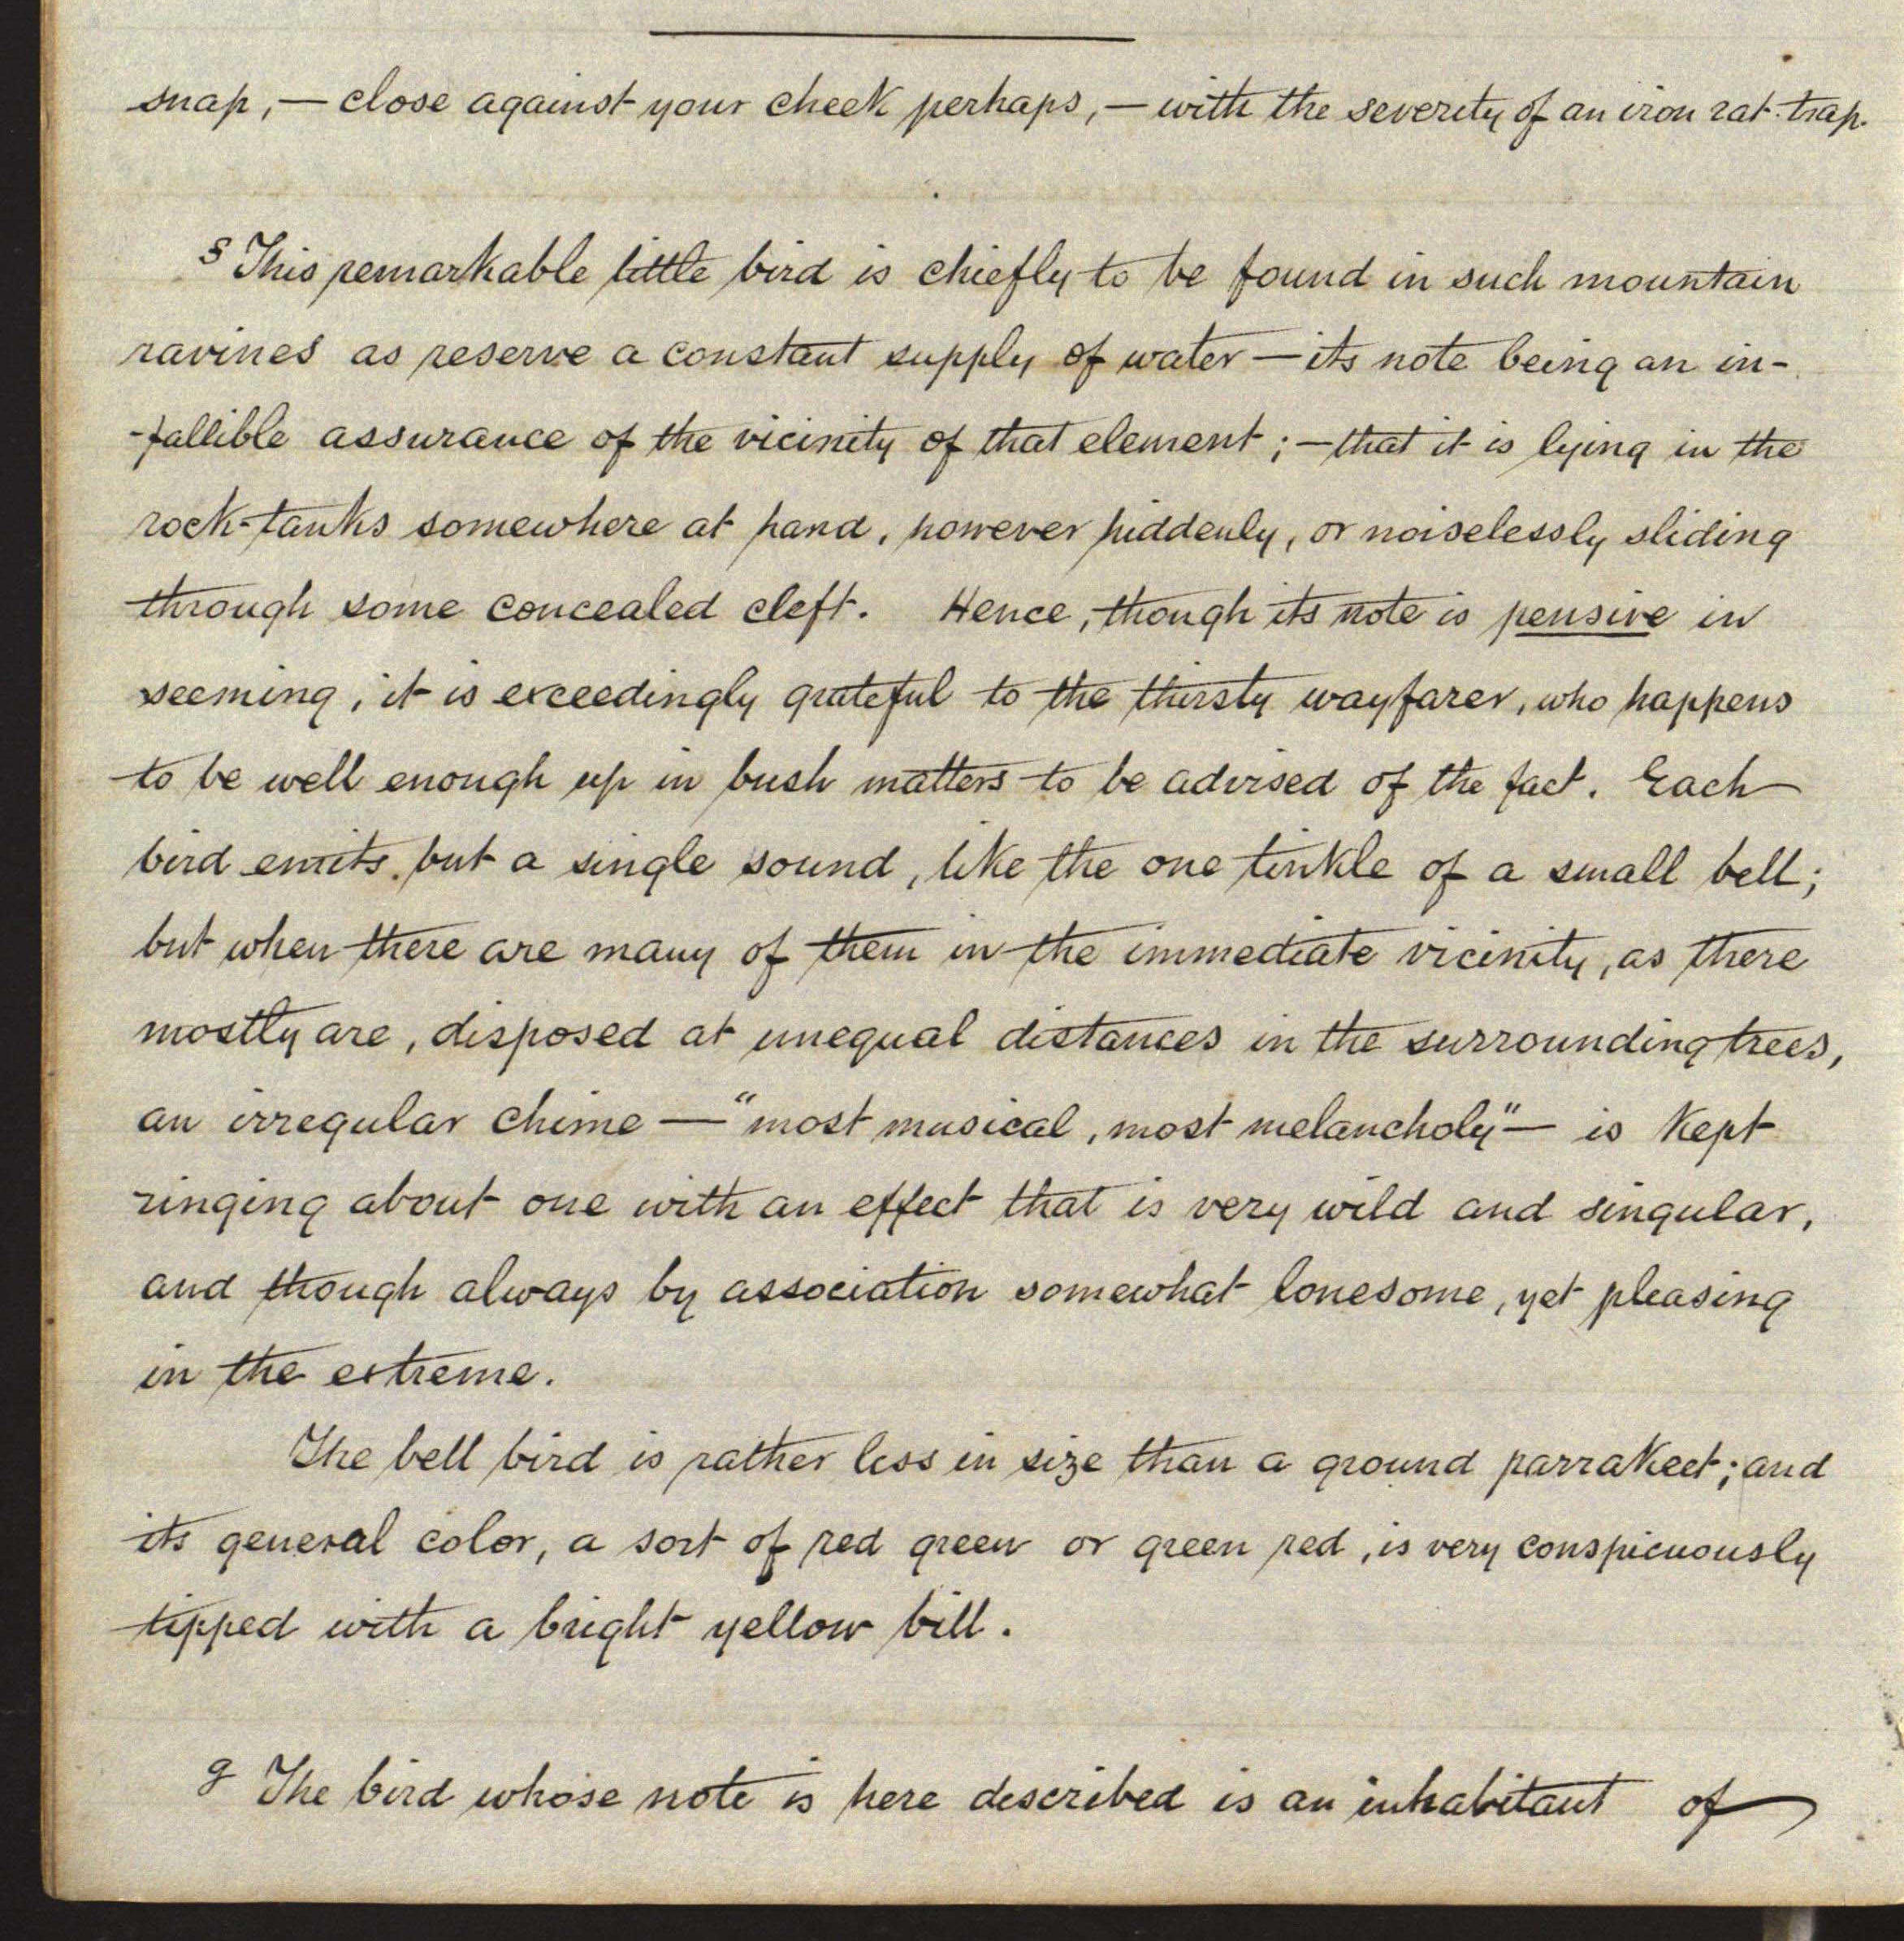 snap, — close against your cheek perhaps, — with the severity of an iron rat-trap.
§ This remarkable little bird is chiefly to be found in such mountain
ravines as reserve a constant supply of water — its note being an in-
-fallible assurance of the vicinity of that element; — that it is lying in the
rock-tanks somewhere at hand, however hiddenly, or noiselessly sliding
through some concealed cleft. Hence, though its note is pensive in
seeming, it is exceedingly grateful to the thirsty wayfarer, who happens
to be well enough up in bush matters to be advised of the fact. Each
bird emits but a single sound, like the one tinkle of a small bell;
but when there are many of them in the immediate vicinity, as there
mostly are, disposed at unequal distances in the surrounding trees,
an irregular chime — "most musical, most melancholy" — is kept
ringing about one with an effect that is very wild and singular,
and though always by association somewhat lonesome, yet pleasing
in the extreme.
The bell bird is rather less in size than a ground parrakeet; and
its general color, a sort of red green or green red, is very conspicuously
tipped with a bright yellow bill.
g The bird whose note is here described is an inhabitant of